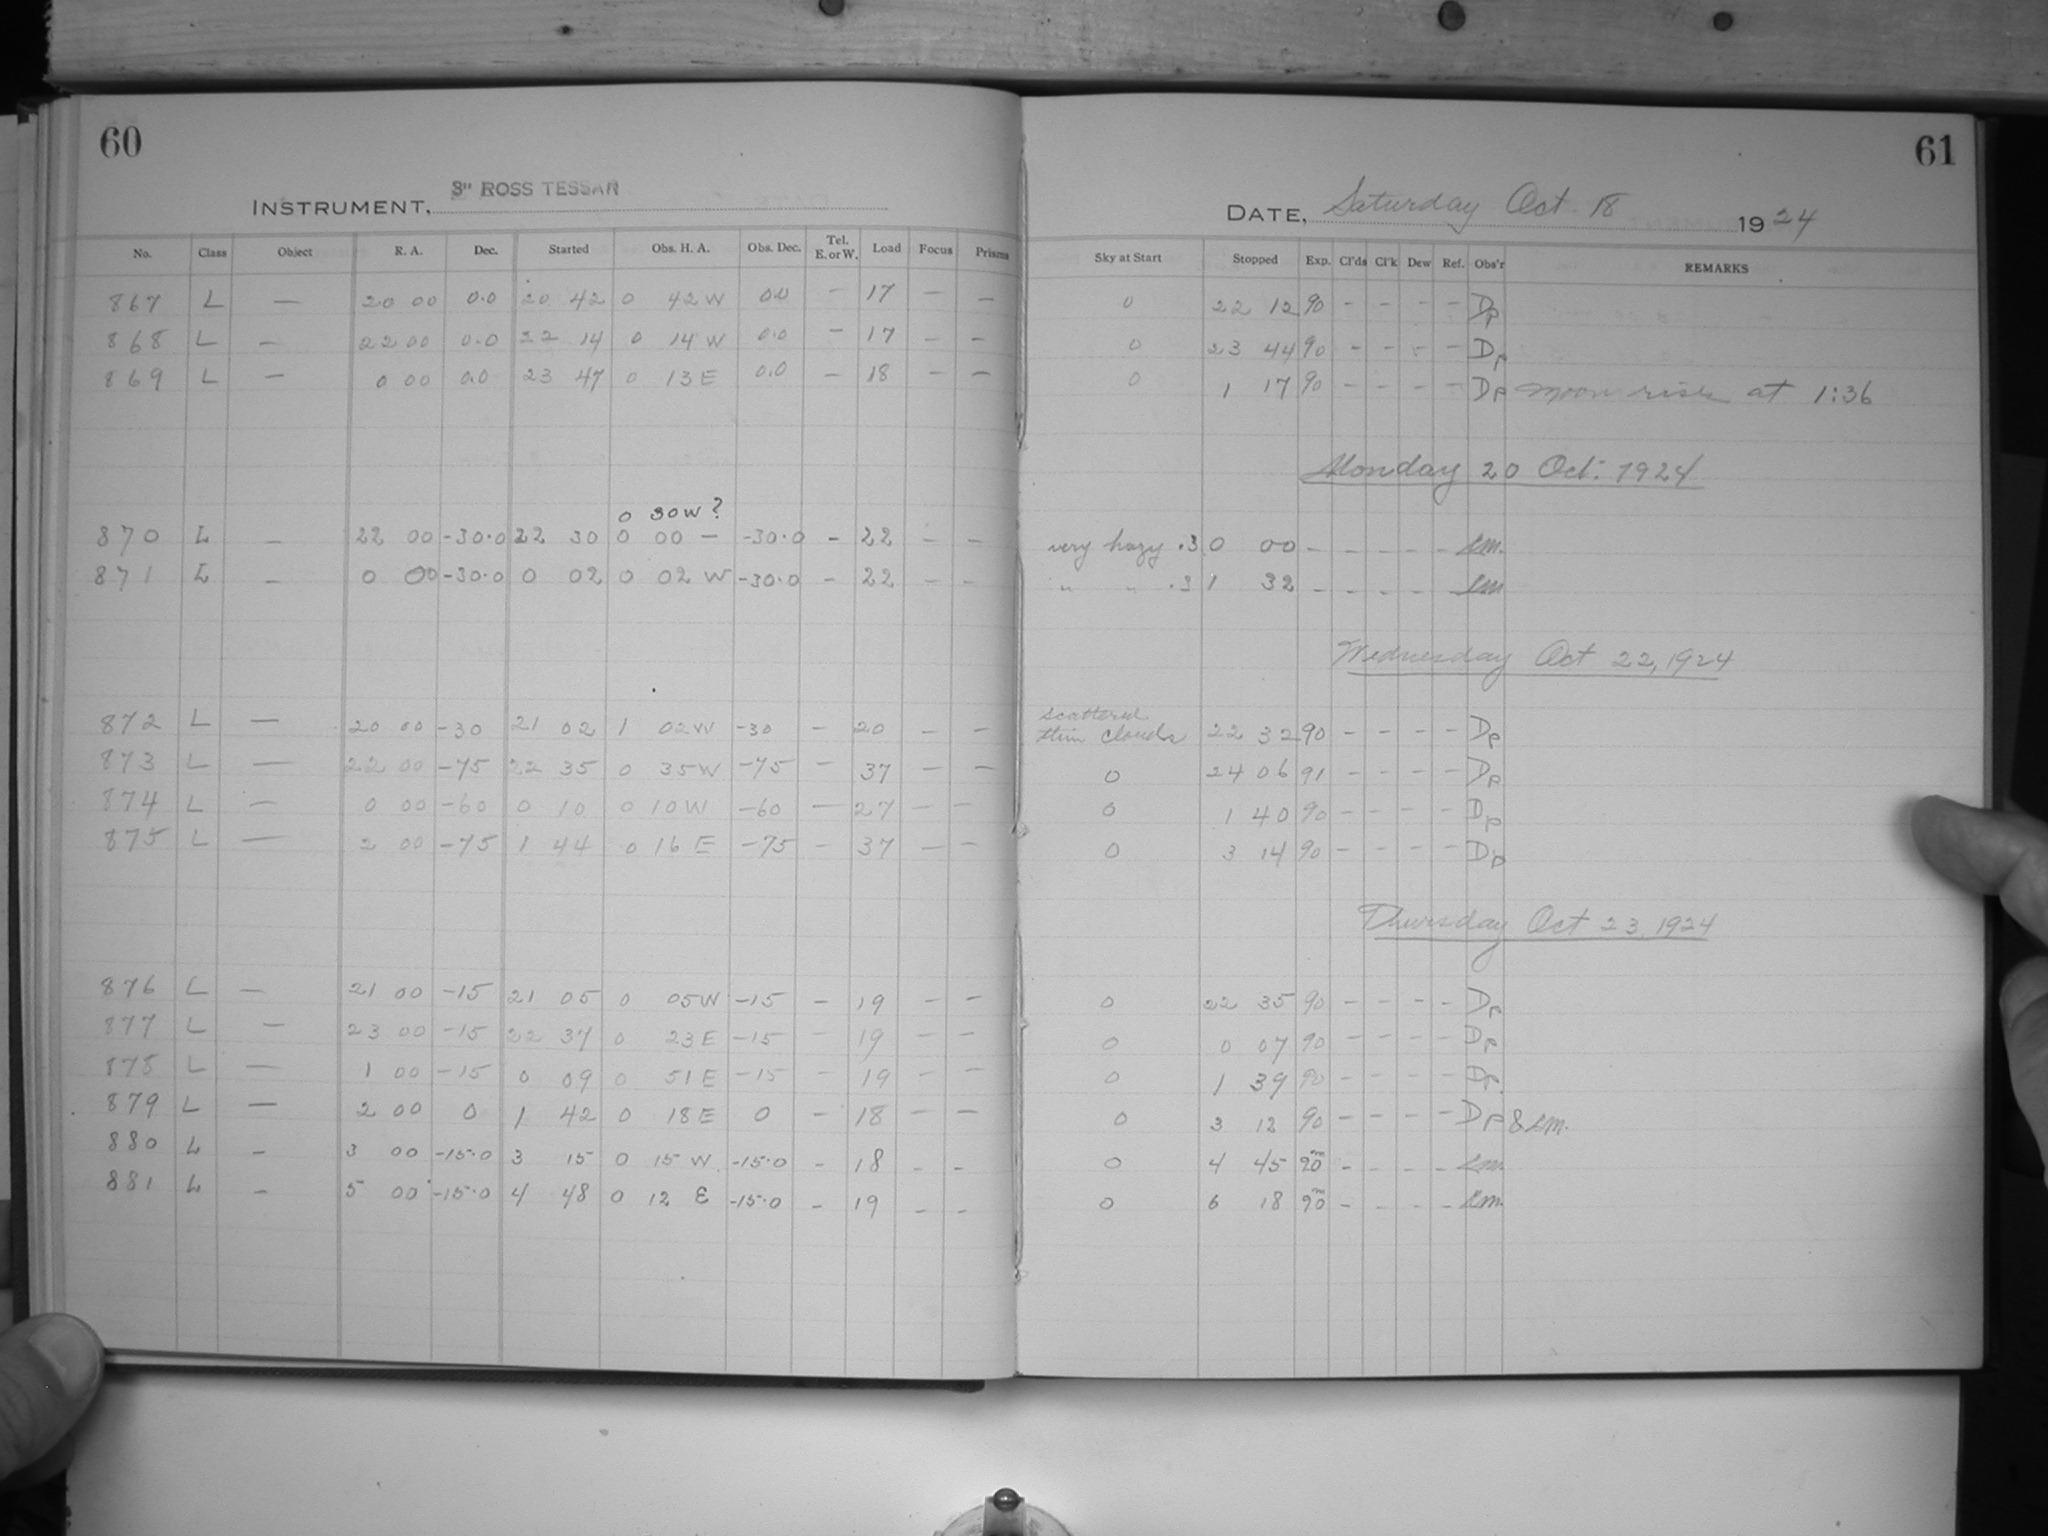 60
INSTRUMENT, 3" ROSS TESSAR
No. Class Object R. A. Dec. Started Obs. H. A. Obs. Dec. Tel. E. or W. Load Focus Prisms
867 L — 20 00 0.0 20 42 0 42 W 0.0 — 17 — —
868 L — 22 00 0.0 22 14 0 14 W 0.0 — 17 — —
869 L — 0 00 0.0 23 47 0 13 E 0.0 — 18 — —
0 30 W ?
870 L — 22 00 -30.0 22 30 0 00 — -30.0 — 22 — —
871 L — 0 00 -30.0 0 02 0 02 W -30.0 — 22 — —
872 L — 20 00 -30 21 02 1 02 W -30 — 20 — —
873 L — 22 00 -75 22 35 0 35 W -75 — 37 — —
874 L — 0 00 -60 0 10 0 10 W -60 — 27 — —
875 L — 2 00 -75 1 44 0 16 E -75 — 37 — —
876 L — 21 00 -15 21 05 0 05 W -15 — 19 — —
877 L — 23 00 -15 22 37 0 23 E -15 — 19 — —
878 L — 1 00 -15 0 09 0 51 E -15 — 19 — —
879 L — 2 00 0 1 42 0 18 E 0 — 18 — —
880 L — 3 00 -15.0 3 15 0 15 W -15.0 — 18 — —
881 L — 5 00 -15.0 4 48 0 12 E -15.0 — 19 — —
61
DATE, Saturday Oct. 18 1924
Sky at Start Stopped Exp. Cl'ds Cl'k Dew Ref. Obs'r REMARKS
0 22 12 90 — — — — Dp
0 23 44 90 — — — — Dp
0 1 17 90 — — — — Dp moon rises at 1:36
Monday 20 Oct. 1924
very hazy .3 0 00 — — — — — 
" " .3 1 32 — — — — — 
Wednesday Oct 22, 1924
scattered
thin clouds 22 32 90 — — — — Dp
0 24 06 91 — — — — Dp
0 1 40 90 — — — — Dp
0 3 14 90 — — — — Dp
Thursday Oct 23, 1924
0 22 35 90 — — — — Dp
0 0 07 90 — — — — Dp
0 1 39 90 — — — — Dp.
0 3 12 90 — — — — Dp &
0 4 45 90m — — — —
0 6 18 90m — — — —